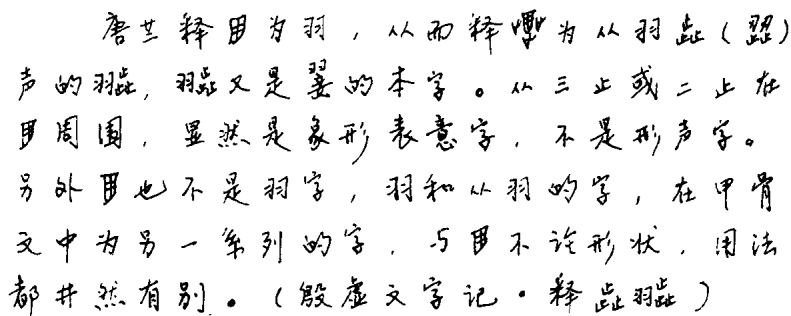 唐兰释为羽，从而释为从羽歮（歰）
声的，又是翣的本字。从三止或二止在
周围，显然是象形表意字，不是形声字。
另外也不是羽字，羽和从羽的字，在甲骨
文中为另一系列的字，与不论形状，用法
都井然有别。（殷虚文字记·释歮）